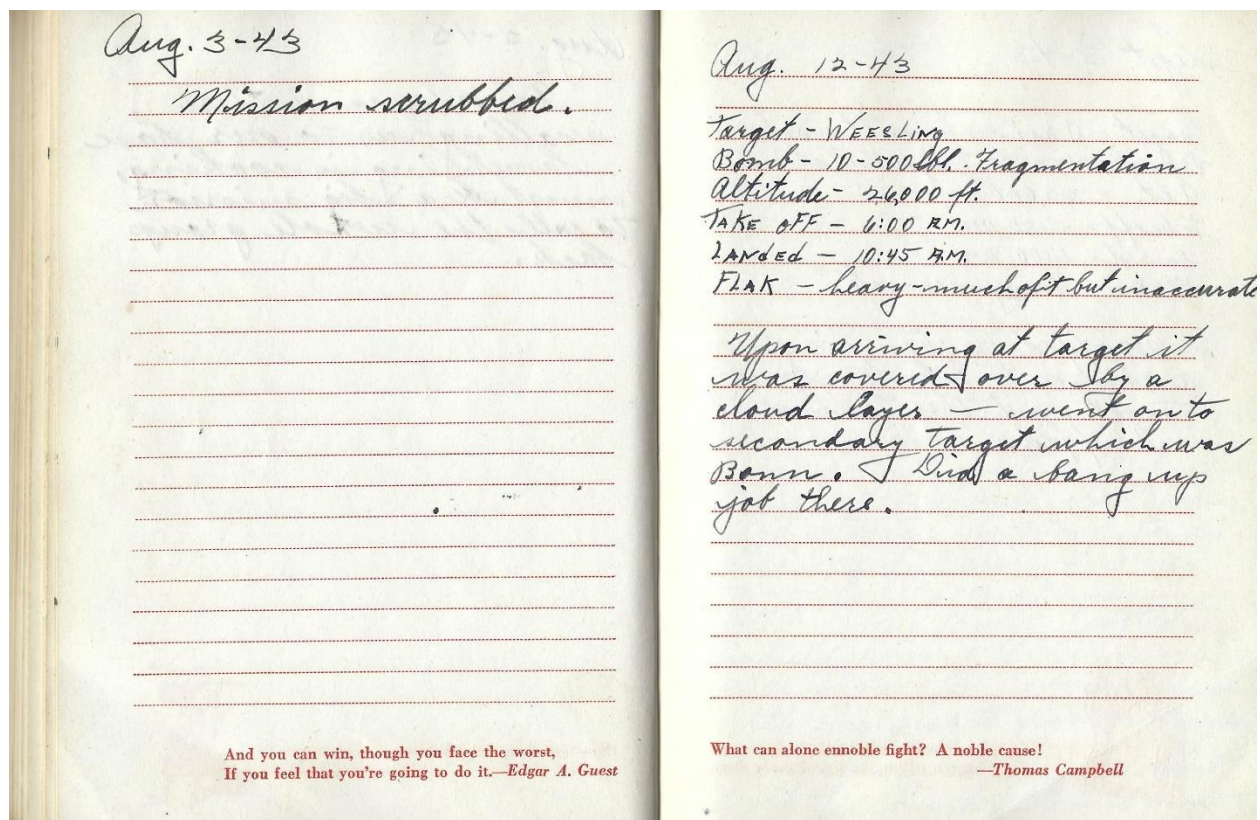 Aug. 3-43
Mission scrubbed.
And you can win, though you face the worst,
If you feel that you're going to do it.—Edgar A. Guest
Aug. 12-43
Target - WEESLING
Bomb - 10-500 lbl. Fragmentation
Altitude - 26,000 ft.
TAKE OFF - 6:00 AM.
LANDED - 10:45 A.M.
FLAK - heavy - much of it but inaccurate
Upon arriving at target it
was covered over by a
cloud layer — went on to
secondary target which was
Bonn. Did a bang up
job there.
What can alone ennoble fight? A noble cause!
—Thomas Campbell